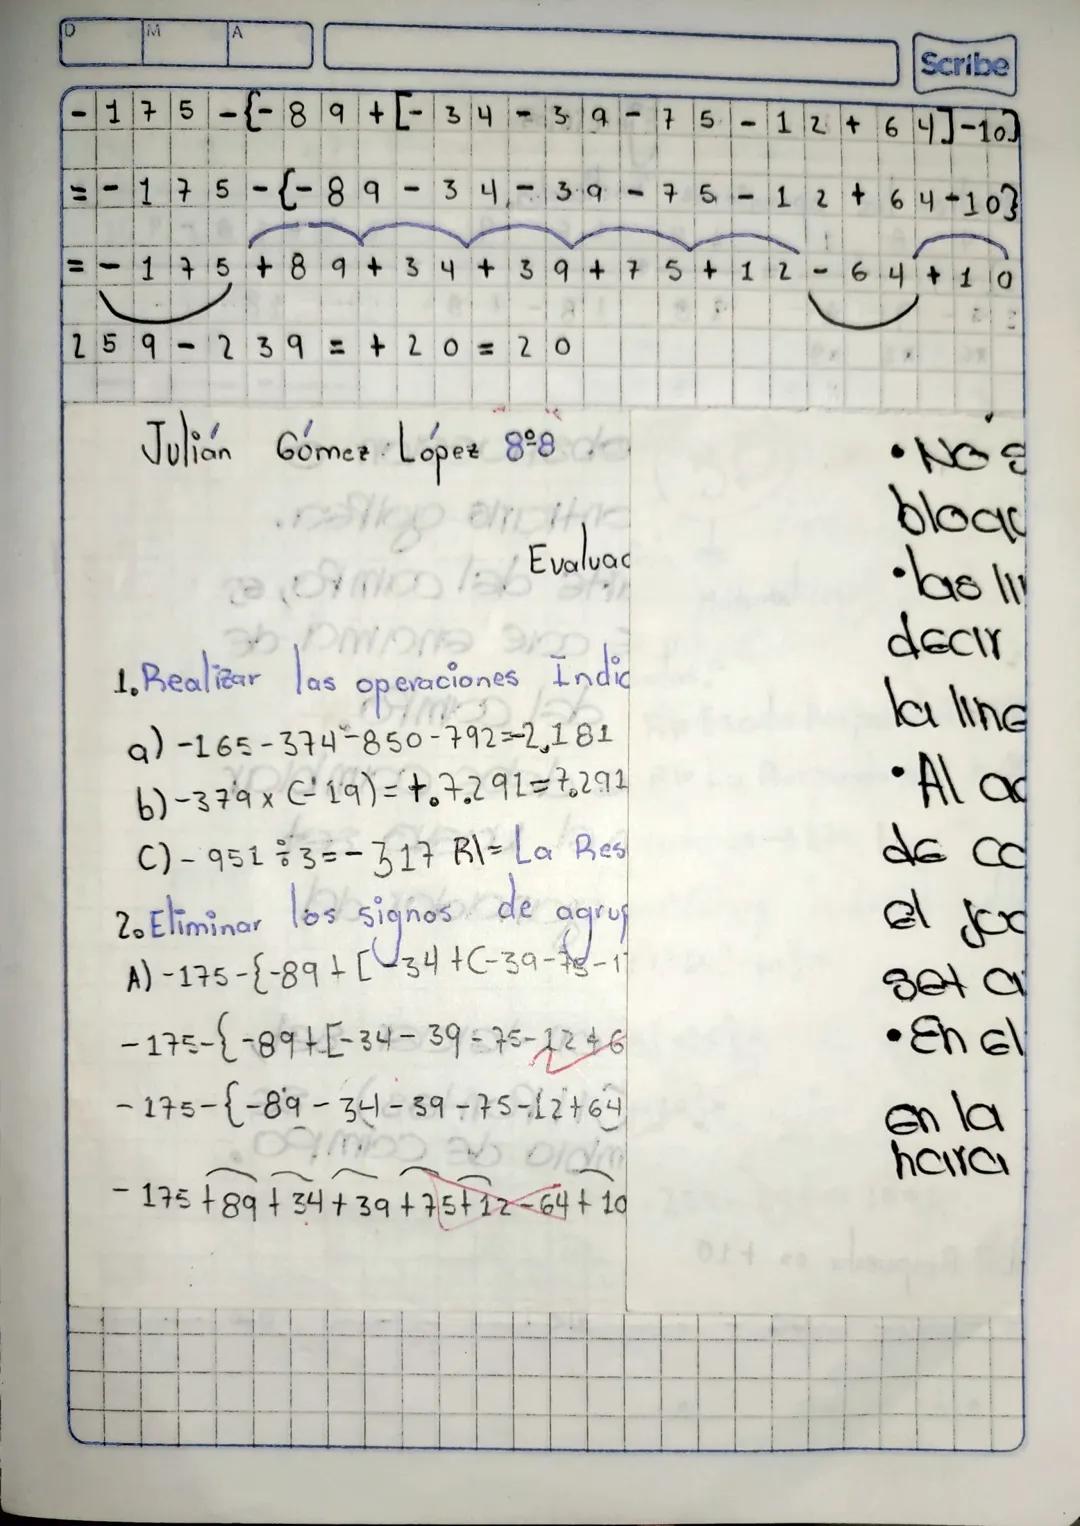 D M A
Scribe
-175-{-89+[-34-39-75-12+64]-10}
=-175-{-89-34-39-75-12+64-10}
=-175+89+34+39+75+12-64+10
259-239=+20=20
Julián Gómez López 8º8
Evaluac
1. Realizar las operaciones Indic
a) -165-374-850-792=-2,181
b) -379x(-19)=+.7.291=7.291
C) -951÷3=-317 R\= La Res
2. Eliminar los signos de agrup
A) -175-{-89+[-34+(-39-75-1
-175-{-89+[-34-39-75-12+6
-175-{-89-34-39-75-12+64
-175+89+34+39+75+12-64+10
• No
bloq
• las li
decir
la line
• Al
de co
el
set
• En el
en la
hara